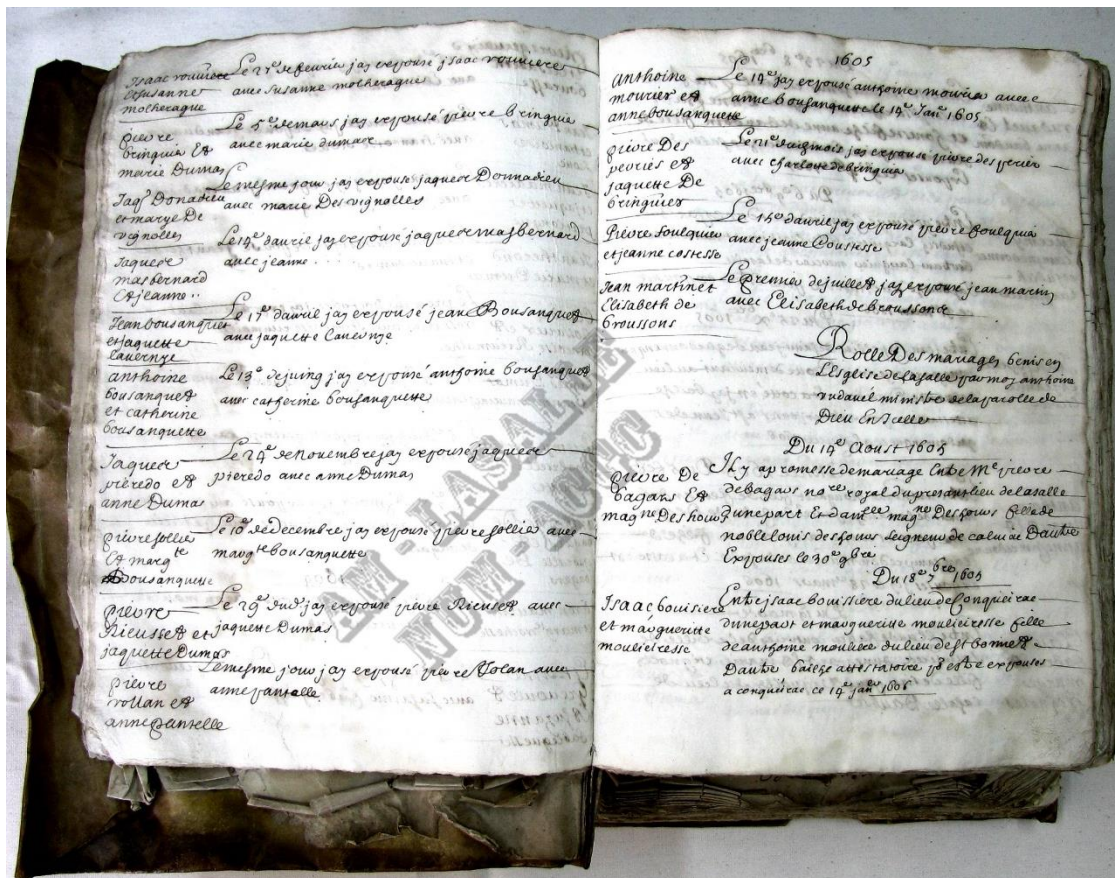 Isaac rouviere
et Susanne
molherague
Le 21e de feurier jay expousé jsaac rouviere
avec Susanne molherague
pierre
bringuia et
marie Dumas
Le 5e de mars jay expousé pierre bringuie
avec marie dumas
Jaqs Donadieu
et marye De
vignolles
Le mesme jour jay expousé jaques Donnadieu
avec marie Des vignolles
Jaques
masbernard
et jeanne ..
Le 14e dauril jay expousé jaques masbernard
avec jeanne ..
Jean bousanquet
et jaquette
Le 17e dauril jay expousé jean Bousanquet
avec jaquette
anthoine
bousanquet
et catherine
bousanquette
Le 13e de juing jay expousé anthoine bousanquet
avec catherine bousanquette
Jaques
pieredo et
anne Dumas
Le 24e de novembre jay expousé jaques
pieredo avec anne Dumas
pierre follie
et margte
Bousanquette
Le 10e de decembre jay expousé pierre follie avec
margte bousanquette
pierre
Rieusset et
jaquette Dumas
Le 29e dud jay expousé pierre Rieuset avec
jaquette Dumas
pierre
rollan et
anne
Le mesme jour jay expousé pierre Rolan avec
anne
1605
anthoine
mourier et
anne bousanquette
Le 14e jay expousé anthoine mourier avec
anne bousanquette le 14e Janr 1605
pierre Des
periés et
jaquette De
bringuier
Le 21e dud mois jay expousé pierre des perier
avec
Pierre foulquier
et jeanne costesse
Le 15e dauril jay expousé pierre foulquia
avec jeanne Coustesse
Jean martin et
Elisabeth de
broussons
Le premier de juillet jay expousé jean martin
avec Elisabeth de broussons
Rolle Des mariages benis en
LEsglise de lasalle par moy anthoine
ministre de la parolle de
Dieu En salle
Du 14e Aoust 1605
pierre De
bagars et
magne Deshours
Il y a promesse de mariage Entre Me pierre
de bagars nore royal du present lieu de lasalle
dune part Et damlle magne Deshours fille de
noble louis deshours seigneur de calviac Dautre
Expouses le 30e 9bre
Du 18e 7bre 1605
Isaac bouisiere
et marguerite
moulieiresse
Entre jsaac bouissiere du lieu de Conqueirac
dune part et marguerite moulieiresse fille
de anthoine mouliere du lieu de st bonnet
Dautre baillée attestatoire pr estre expouses
a conqueirac ce 14e janr 1606
AM - LASALLE
NUM - ACGC